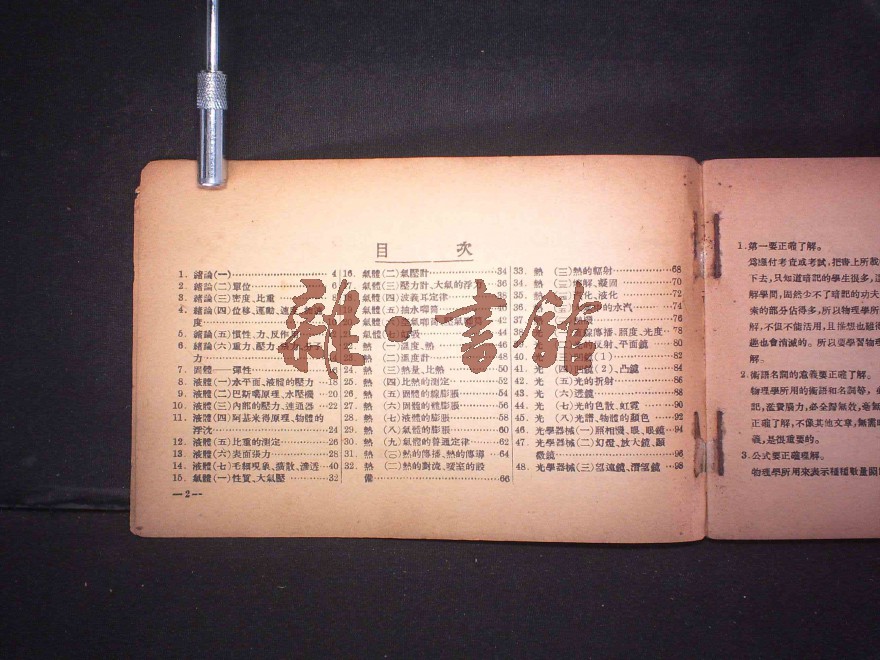 目 次
1. 緒論(一)……4
2. 緒論(二)單位……6
3. 緒論(三)密度、比重……8
4. 緒論(四)位移、運動、速度
度
5. 緒論(五)慣性、力、反作用
6. 緒論(六)重力、壓力
力
7. 固體——彈性……16
8. 液體(一)水平面、液體的壓力…18
9. 液體(二)巴斯噶原理、水壓機…20
10. 液體(三)內部的壓力、連通器…22
11. 液體(四)阿基米得原理、物體的
浮沈……24
12. 液體(五)比重的測定……26
13. 液體(六)表面張力……28
14. 液體(七)毛細現象、擴散、滲透…40
15. 氣體(一)性質、大氣壓……32
—2—
16. 氣體(二)氣壓計……34
氣體(三)壓力計、大氣的浮力…36
氣體(四)波義耳定律……38
氣體(五)抽水唧筒
熱 (一)溫度、熱……46
熱 (二)溫度計……48
24. 熱 (三)熱量、比熱……50
25. 熱 (四)比熱的測定……52
26. 熱 (五)固體的線膨脹……54
27. 熱 (六)固體的體膨脹……56
28. 熱 (七)液體的膨脹……58
29. 熱 (八)氣體的膨脹……60
30. 熱 (九)氣體的普通定律……62
31. 熱 (一)熱的傳播、熱的傳導…64
32. 熱 (二)熱的對流、暖室的設
備……66
33. 熱 (三)熱的輻射……68
34. 熱 (一)熔解、凝固……70
35. 熱 化、液化……72
36. 的水汽……74
37. 76
38. 線傳播、照度、光度…78
的反射、平面鏡……80
(1)……82
41. 光 (四)面鏡(2)、凸鏡……84
42. 光 (五)光的折射……86
43. 光 (六)透鏡……88
44. 光 (七)光的色散、虹霓……90
45. 光 (八)光譜、物體的顏色……92
46. 光學器械(一)照相機、眼、眼鏡…94
47. 光學器械(二)幻燈、放大鏡、顯
微鏡……96
48. 光學器械(三)望遠鏡、潛望鏡…98
雜·書館
1. 第一要正確了解。
爲應付考查或考試,把書上所載
下去,只知道暗記的學生很多,
解學問,固然少不了暗記的功夫
索的部分佔得多,所以物理學所
解,不但不能活用,且聯想也
趣也會消滅的。所以要學習物理
解。
2. 術語名詞的意義要正確了解。
物理學所用的術語和名詞等,必
記,濫費腦力,必全歸無效,毫無
正確了解,不像其他文章,無需
義,是很重要的。
3. 公式要正確理解。
物理學所用來表示種種數量關